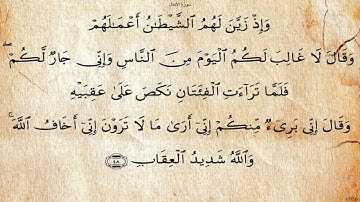 سورة الأنفال
وَإِذْ زَيَّنَ لَهُمُ الشَّيْطَـٰنُ أَعْمَـٰلَهُمْ
وَقَالَ لَا غَالِبَ لَكُمُ الْيَوْمَ مِنَ النَّاسِ وَإِنِّي جَارٌ لَّكُمْ ۖ
فَلَمَّا تَرَآءَتِ الْفِئَتَانِ نَكَصَ عَلَىٰ عَقِبَيْهِ
وَقَالَ إِنِّي بَرِىٓءٌ مِّنكُمْ إِنِّىٓ أَرَىٰ مَا لَا تَرَوْنَ إِنِّىٓ أَخَافُ اللَّهَ ۚ
وَاللَّهُ شَدِيدُ الْعِقَابِ ٤٨